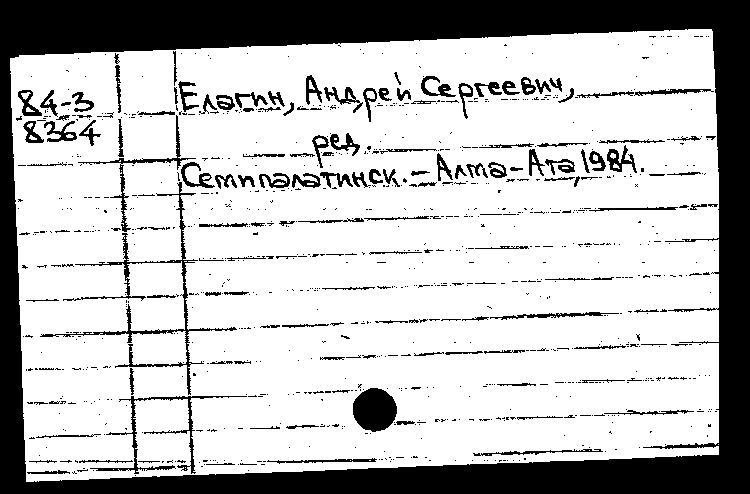 84-3
8364
Елагин, Андрей Сергеевич,
ред.
Семипалатинск. – Алма-Ата, 1984.